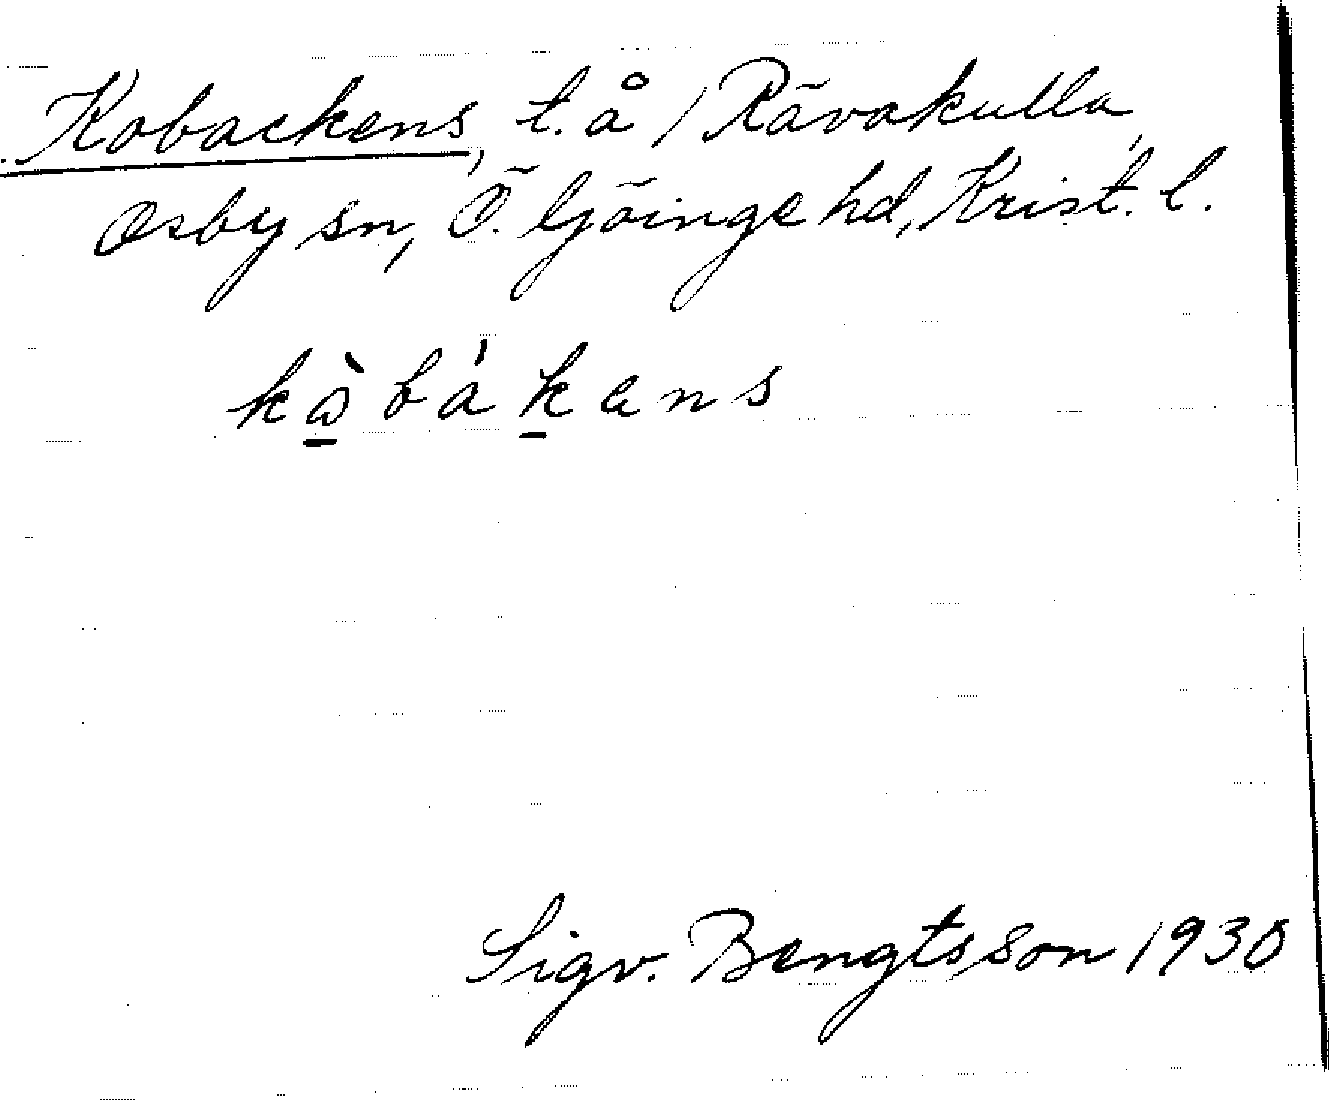 Kobackens, t.å / Rävakulla,
Osby sn, Ö. Göinge hd, Krist. l.
kòbákens
Sigv. Bengtsson 1930